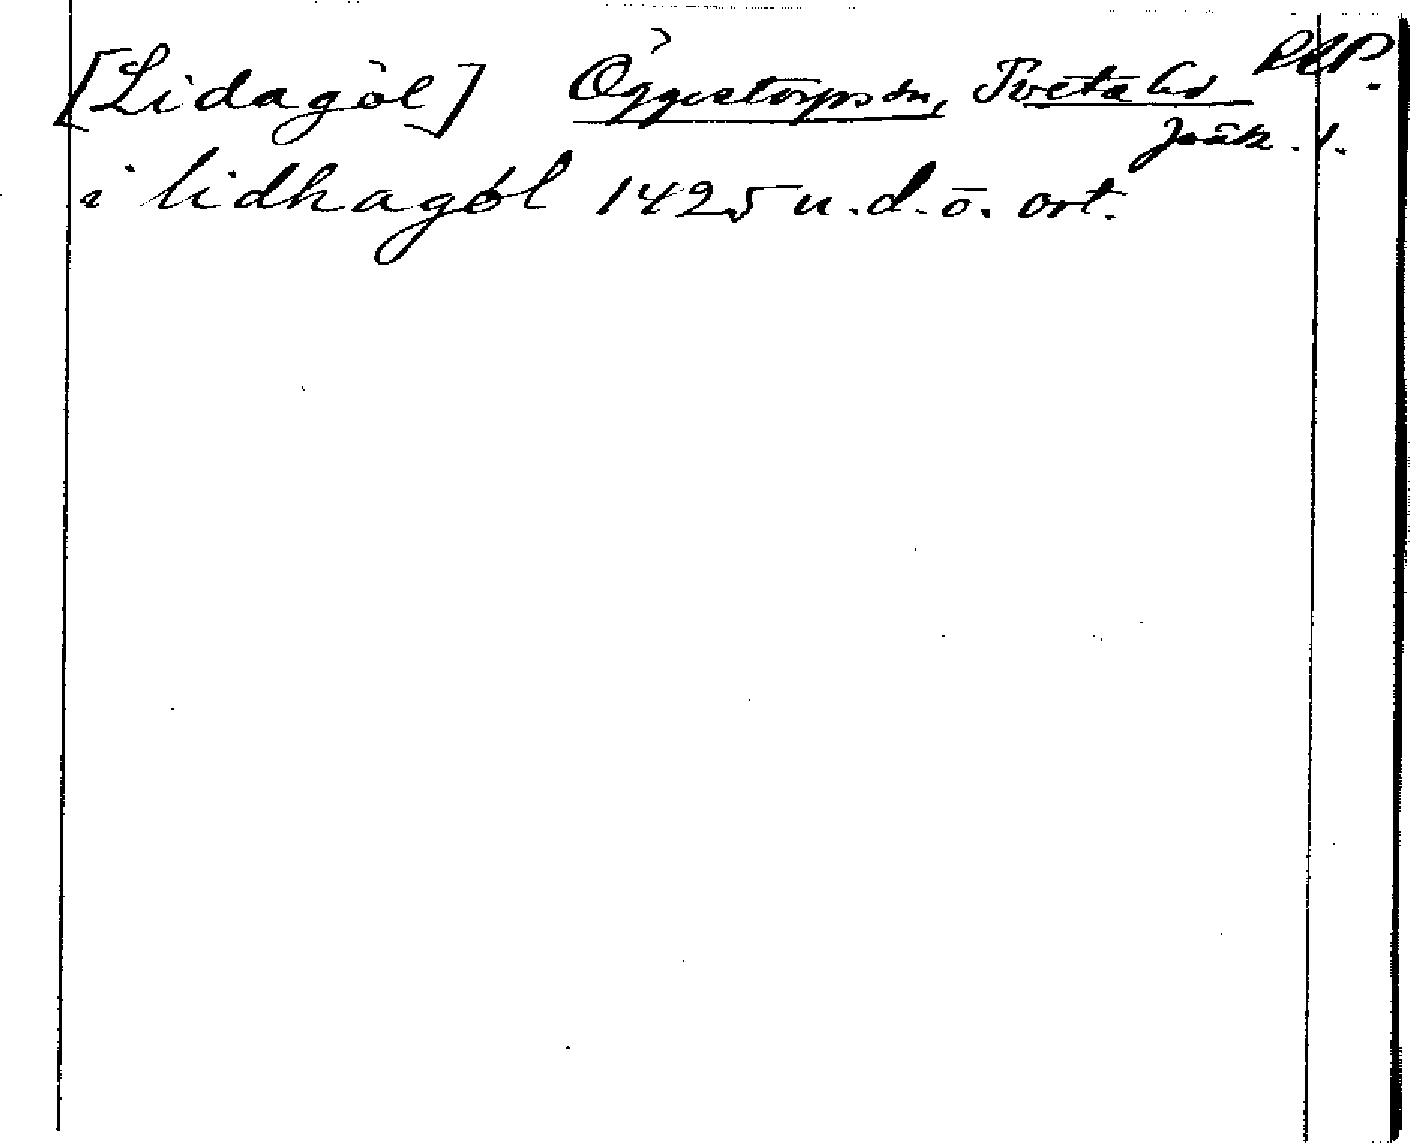 [Lidagöl] Öggestorps sn, Tveta hd RAP.
Jönk. l.
i lidhagöl 1425 u.d.o. ort.